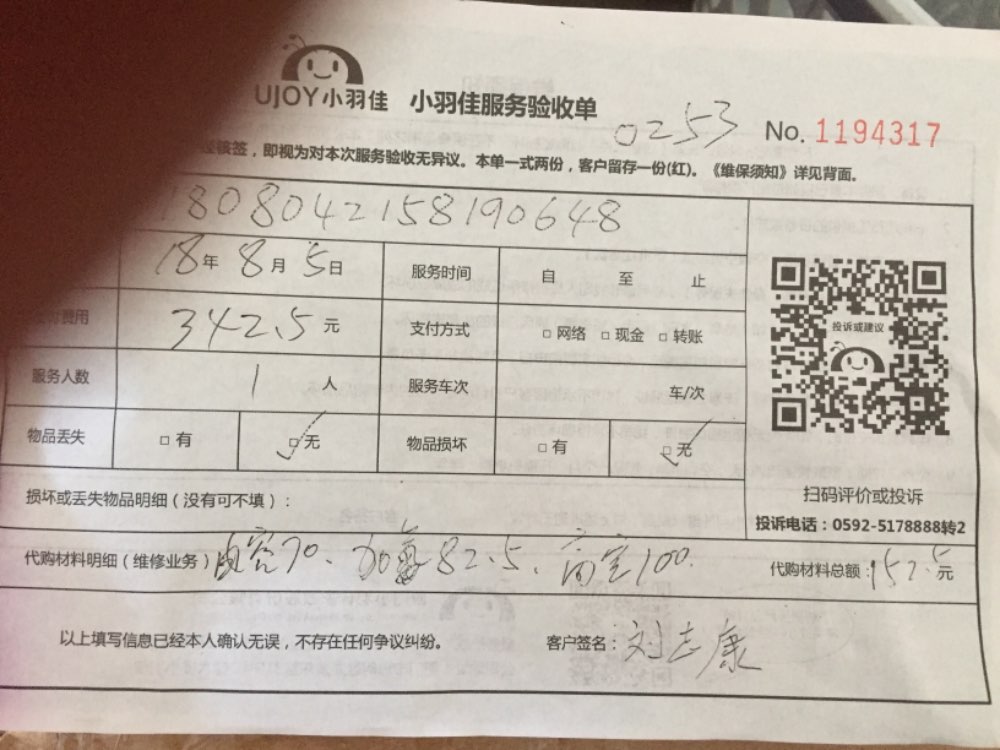 UJOY小羽佳 小羽佳服务验收单 0253 No. 1194317
核签，即视为对本次服务验收无异议。本单一式两份，客户留存一份(红)。《维保须知》详见背面。
1808042158190648
18年8月5日 服务时间 自 至 止
费用 342.5元 支付方式 □ 网络 □ 现金 □ 转账
服务人数 1 人 服务车次 车/次
物品丢失 □ 有 □ 无 物品损坏 □ 有 □ 无
投诉或建议
扫码评价或投诉
投诉电话：0592-5178888转2
损坏或丢失物品明细（没有可不填）：
代购材料明细（维修业务） 70、加 82.5、高空100. 代购材料总额：152.5元
以上填写信息已经本人确认无误，不存在任何争议纠纷。 客户签名：刘志康